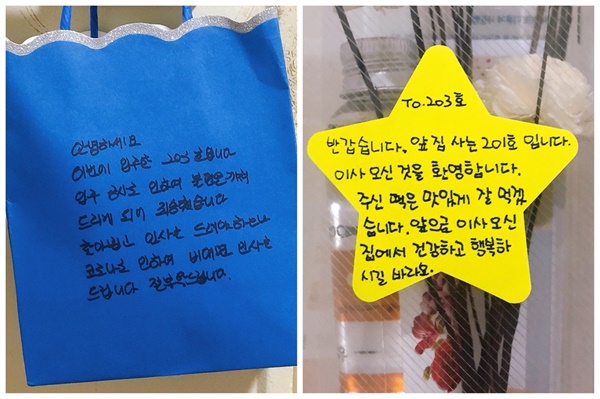 안녕하세요
이번에 입주한 203호입니다
입주 공사로 인하여 불편을 끼쳐
드리게 되어 죄송했습니다
찾아뵙고 인사를 드려야하나
코로나로 인하여 비대면 인사를
드립니다 잘부탁드립니다.
To.203호
반갑습니다. 앞집 사는 201호 입니다.
이사 오신 것을 환영합니다.
주신 떡은 맛있게 잘 먹겠
습니다. 앞으로 이사 오신
집에서 건강하고 행복하
시길 바라요.